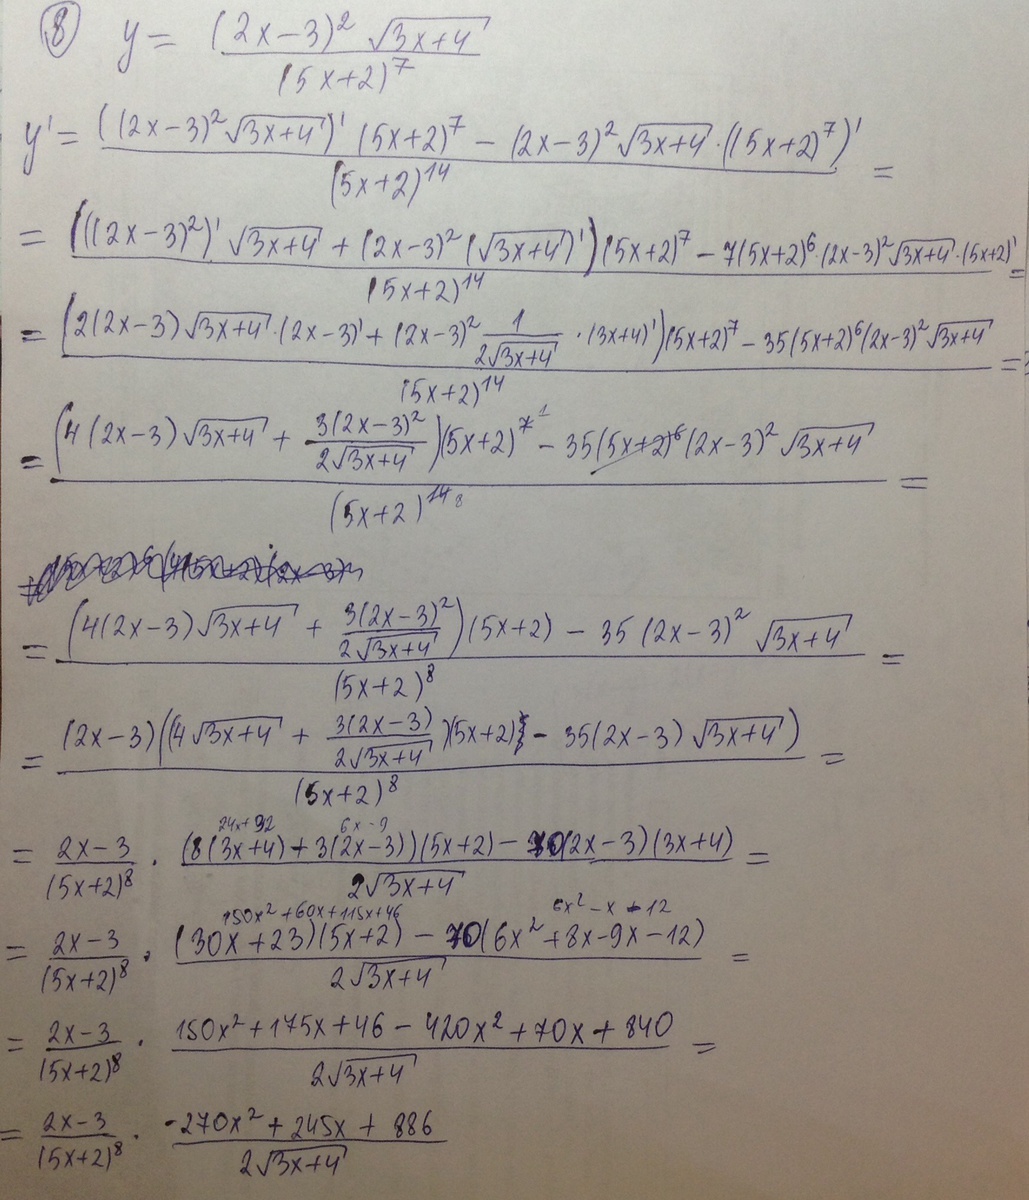 8) y = (2x-3)² √(3x+4) / (5x+2)⁷
y' = (((2x-3)² √(3x+4))' (5x+2)⁷ - (2x-3)² √(3x+4) · ((5x+2)⁷)') / (5x+2)¹⁴ =
= ((((2x-3)²)' √(3x+4) + (2x-3)² (√(3x+4))') (5x+2)⁷ - 7(5x+2)⁶ · (2x-3)² √(3x+4) · (5x+2)') / (5x+2)¹⁴ =
= (2(2x-3) √(3x+4) · (2x-3)' + (2x-3)² 1/(2√(3x+4)) · (3x+4)') (5x+2)⁷ - 35(5x+2)⁶ (2x-3)² √(3x+4) / (5x+2)¹⁴ =
= (4(2x-3) √(3x+4) + 3(2x-3)²/(2√(3x+4))) (5x+2)⁷ ¹ - 35(5x+2)⁶ (2x-3)² √(3x+4) / (5x+2)¹⁴ ⁸ =
= (4(2x-3) √(3x+4) + 3(2x-3)²/(2√(3x+4))) (5x+2) - 35 (2x-3)² √(3x+4) / (5x+2)⁸ =
= (2x-3) ((4√(3x+4) + 3(2x-3)/(2√(3x+4))) (5x+2) - 35(2x-3) √(3x+4)) / (5x+2)⁸ =
24x+32 6x-9
= (2x-3)/(5x+2)⁸ · (8(3x+4) + 3(2x-3))(5x+2) - 70(2x-3)(3x+4) / (2√(3x+4)) =
150x² + 60x + 115x + 46 6x² - x - 12
= (2x-3)/(5x+2)⁸ · (30x+23)(5x+2) - 70(6x² + 8x - 9x - 12) / (2√(3x+4)) =
= (2x-3)/(5x+2)⁸ · (150x² + 175x + 46 - 420x² + 70x + 840) / (2√(3x+4)) =
= (2x-3)/(5x+2)⁸ · (-270x² + 245x + 886) / (2√(3x+4))